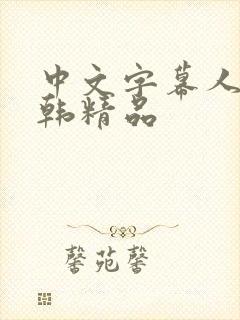 中文字幕人
韩精品
馨苑馨